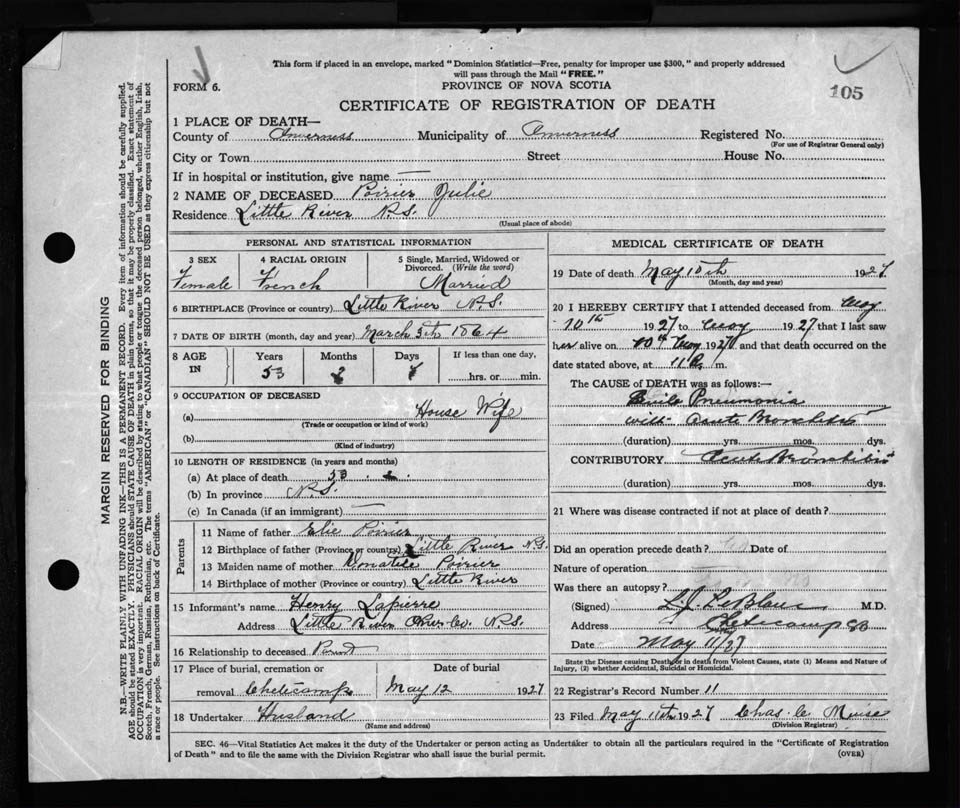 This form if placed in an envelope, marked "Dominion Statistics—Free, penalty for improper use $300," and properly addressed
will pass through the Mail "FREE."
FORM 6.
PROVINCE OF NOVA SCOTIA
105
CERTIFICATE OF REGISTRATION OF DEATH
1 PLACE OF DEATH—
County of Inverness Municipality of Inverness Registered No.
(For use of Registrar General only)
City or Town Street House No.
If in hospital or institution, give name —
2 NAME OF DECEASED Poirier Julie
Residence Little River N.S.
(Usual place of abode)
PERSONAL AND STATISTICAL INFORMATION
3 SEX 4 RACIAL ORIGIN 5 Single, Married, Widowed or
Divorced. (Write the word)
Female French Married
6 BIRTHPLACE (Province or country) Little River N.S.
7 DATE OF BIRTH (month, day and year) March 1864
8 AGE IN Years Months Days If less than one day,
53 2 hrs. or min.
9 OCCUPATION OF DECEASED
(a) House Wife
(Trade or occupation or kind of work)
(b)
(Kind of industry)
10 LENGTH OF RESIDENCE (in years and months)
(a) At place of death 53
(b) In province N.S.
(c) In Canada (if an immigrant) —
Parents
11 Name of father Elie Poirier
12 Birthplace of father (Province or country) Little River N.S.
13 Maiden name of mother Poirier
14 Birthplace of mother (Province or country) Little River
15 Informant's name Henry Lapierre
Address Little River N.S.
16 Relationship to deceased
17 Place of burial, cremation or Date of burial
removal Cheticamp May 12 1927
18 Undertaker Husland
(Name and address)
MEDICAL CERTIFICATE OF DEATH
19 Date of death May 10th 1927
(Month, day and year)
20 I HEREBY CERTIFY that I attended deceased from May
10th 1927 to May 1927 that I last saw
her alive on 10th May 1927 and that death occurred on the
date stated above, at 11 m.
The CAUSE OF DEATH was as follows:—
Pneumonia
with Acute
(duration) yrs. mos. dys.
CONTRIBUTORY Acute
(duration) yrs. mos. dys.
21 Where was disease contracted if not at place of death?
Did an operation precede death? Date of
Nature of operation
Was there an autopsy?
(Signed) L.J. LeBlanc M.D.
Address Cheticamp
Date May 11/27
State the Disease causing Death, or in death from Violent Causes, state (1) Means and Nature of
Injury, (2) whether Accidental, Suicidal or Homicidal.
22 Registrar's Record Number 11
23 Filed May 11th 1927 Chas. Muise
(Division Registrar)
SEC. 46—Vital Statistics Act makes it the duty of the Undertaker or person acting as Undertaker to obtain all the particulars required in the "Certificate of Registration
of Death" and to file the same with the Division Registrar who shall issue the burial permit.
(OVER)
MARGIN RESERVED FOR BINDING
N.B.—WRITE PLAINLY WITH UNFADING INK—THIS IS A PERMANENT RECORD. Every item of information should be carefully supplied.
AGE should be stated EXACTLY. PHYSICIANS should STATE CAUSE OF DEATH in plain terms, so that it may be properly classified. Exact statement of
OCCUPATION is very important. RACIAL ORIGIN will be described by stating to what people or tongue the deceased person belonged, whether English, Irish,
Scotch, French, German, Russian, Ruthenian, etc. The terms "AMERICAN" or "CANADIAN" SHOULD NOT BE USED as they express citizenship but not
a race or people. See instructions on back of Certificate.